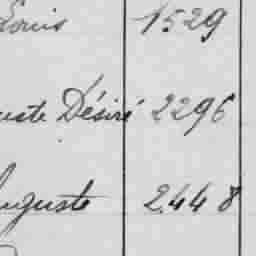 Louis 1529
uste Désiré 2296
Auguste 2448